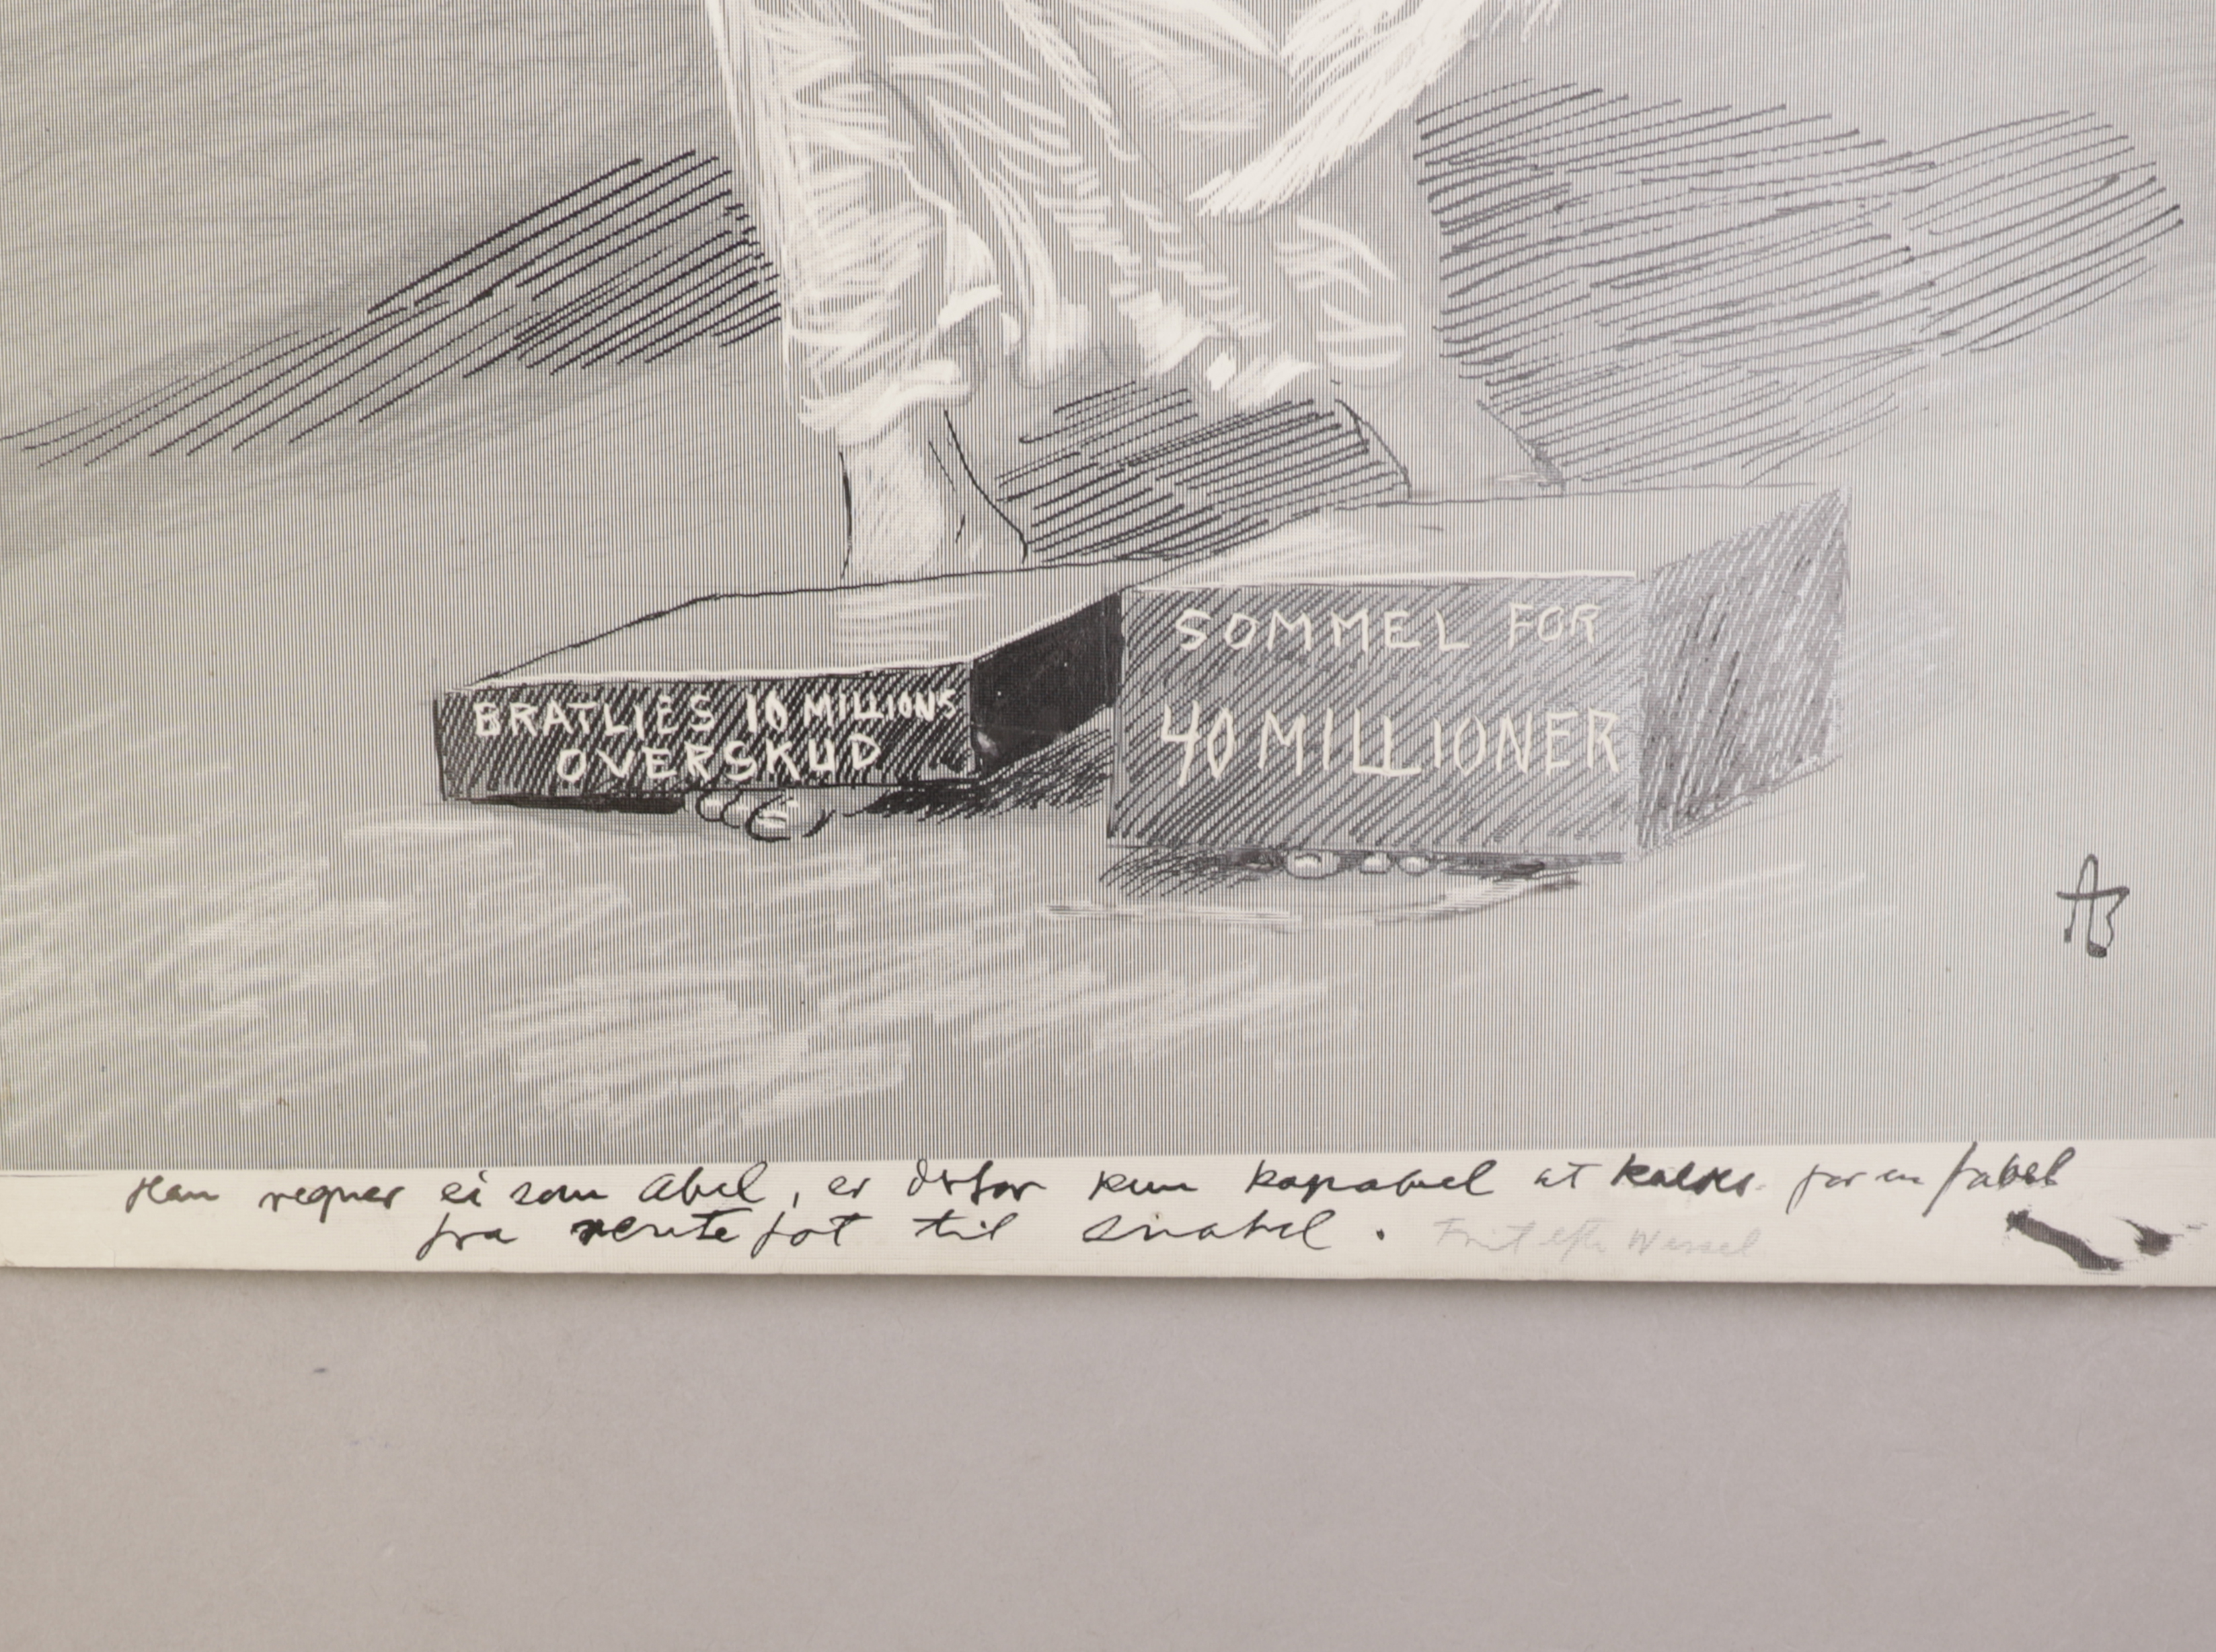 BRATLIES 10 MILLIONS
OVERSKUD
SOMMEL FOR
40 MILLIONER
AB
Han regner ei som Abel, er derfor kun kapabel at kaldes for en fabel
fra rentefot til snabel.
Frit efter Wessel